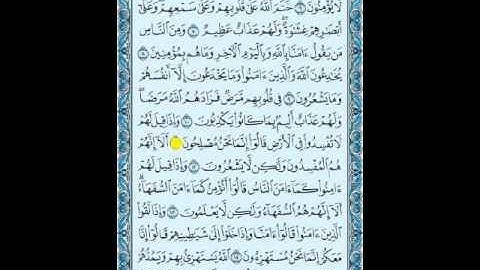 لَا يُؤْمِنُونَ ٦ خَتَمَ اللَّهُ عَلَىٰ قُلُوبِهِمْ وَعَلَىٰ سَمْعِهِمْ وَعَلَىٰ
أَبْصَارِهِمْ غِشَاوَةٌ وَلَهُمْ عَذَابٌ عَظِيمٌ ٧ وَمِنَ النَّاسِ
مَن يَقُولُ ءَامَنَّا بِاللَّهِ وَبِالْيَوْمِ الْآخِرِ وَمَا هُم بِمُؤْمِنِينَ ٨
يُخَادِعُونَ اللَّهَ وَالَّذِينَ ءَامَنُوا وَمَا يَخْدَعُونَ إِلَّا أَنفُسَهُمْ
وَمَا يَشْعُرُونَ ٩ فِي قُلُوبِهِم مَّرَضٌ فَزَادَهُمُ اللَّهُ مَرَضًا
وَلَهُمْ عَذَابٌ أَلِيمٌ بِمَا كَانُوا يَكْذِبُونَ ١٠ وَإِذَا قِيلَ لَهُمْ
لَا تُفْسِدُوا فِي الْأَرْضِ قَالُوا إِنَّمَا نَحْنُ مُصْلِحُونَ ١١ أَلَا إِنَّهُمْ
هُمُ الْمُفْسِدُونَ وَلَٰكِن لَّا يَشْعُرُونَ ١٢ وَإِذَا قِيلَ لَهُمْ
ءَامِنُوا كَمَا ءَامَنَ النَّاسُ قَالُوا أَنُؤْمِنُ كَمَا ءَامَنَ السُّفَهَاءُ
أَلَا إِنَّهُمْ هُمُ السُّفَهَاءُ وَلَٰكِن لَّا يَعْلَمُونَ ١٣ وَإِذَا لَقُوا
الَّذِينَ ءَامَنُوا قَالُوا ءَامَنَّا وَإِذَا خَلَوْا إِلَىٰ شَيَاطِينِهِمْ قَالُوا إِنَّا
مَعَكُمْ إِنَّمَا نَحْنُ مُسْتَهْزِءُونَ ١٤ اللَّهُ يَسْتَهْزِئُ بِهِمْ وَيَمُدُّهُمْ